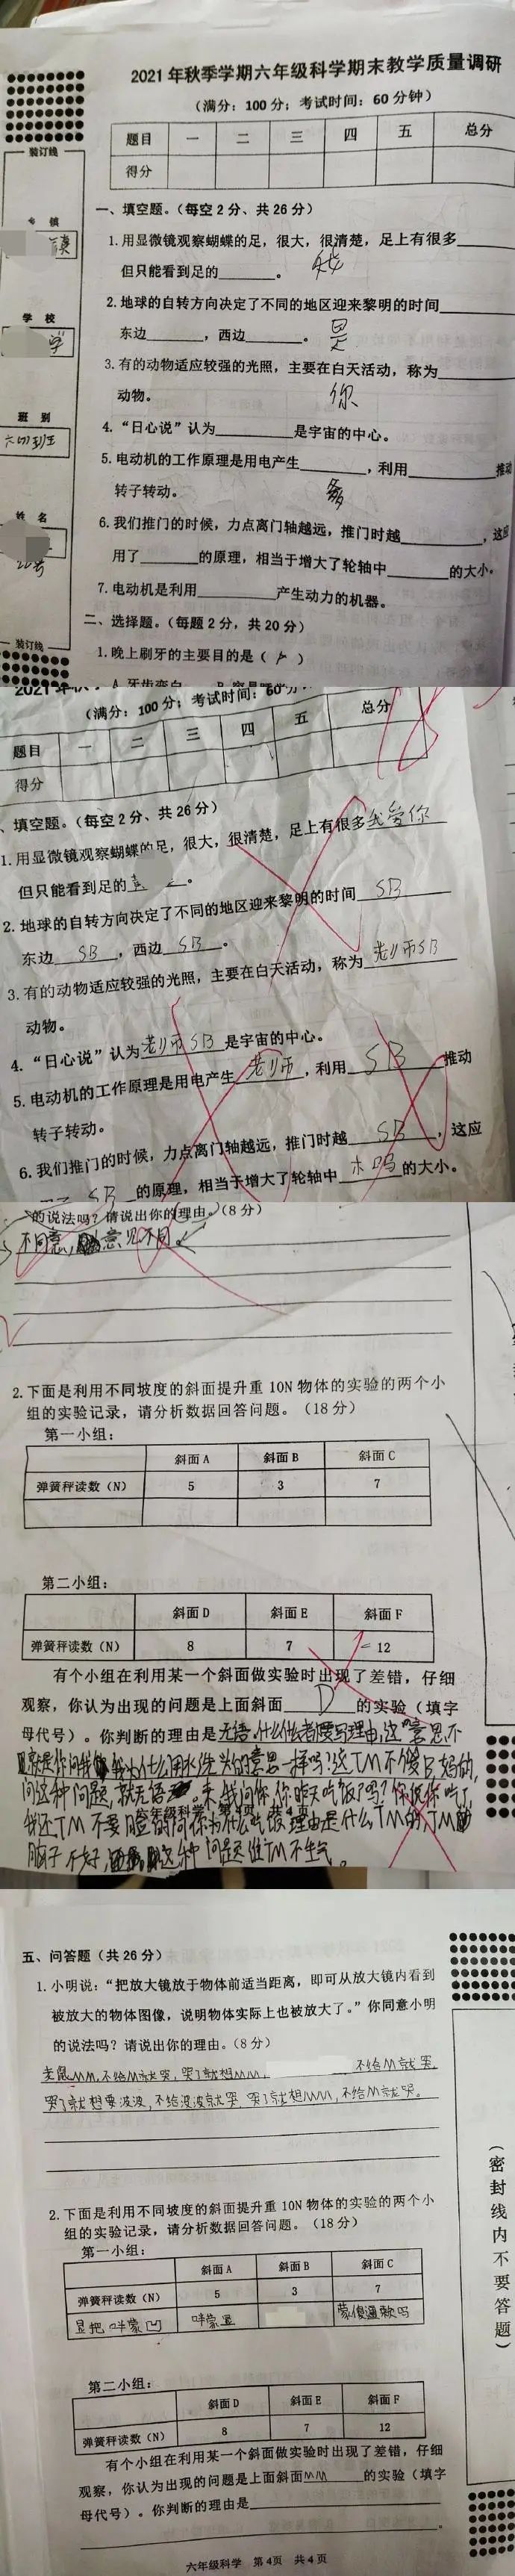 2021年秋季学期六年级科学期末教学质量调研
（满分：100分；考试时间：60分钟）
题目 一 二 三 四 五 总分
得分
装订线
乡 镇
学 校
班 别
姓 名
装订线
一、填空题。（每空2分、共26分）
1.用显微镜观察蝴蝶的足，很大，很清楚，足上有很多
但只能看到足的 。
2.地球的自转方向决定了不同的地区迎来黎明的时间
东边 ，西边 。 是
3.有的动物适应较强的光照，主要在白天活动，称为
动物。 你
4.“日心说”认为 是宇宙的中心。
5.电动机的工作原理是用电产生 ，利用 推动
转子转动。
6.我们推门的时候，力点离门轴越远，推门时越 ，这应
用了 的原理，相当于增大了轮轴中 的大小。
7.电动机是利用 产生动力的机器。
二、选择题。（每题2分，共20分）
1.晚上刷牙的主要目的是（ ）
（满分：100分；考试时间：60分
题目 一 二 三 四 五 总分
得分
、填空题。（每空2分、共26分）
1.用显微镜观察蝴蝶的足，很大，很清楚，足上有很多我爱你
但只能看到足的 。
2.地球的自转方向决定了不同的地区迎来黎明的时间 SB
东边 SB ，西边 SB 。
3.有的动物适应较强的光照，主要在白天活动，称为 老师SB
动物。
4.“日心说”认为老师SB是宇宙的中心。
5.电动机的工作原理是用电产生 老师 ，利用 SB 推动
转子转动。
6.我们推门的时候，力点离门轴越远，推门时越 SB ，这应
SB 的原理，相当于增大了轮轴中 的大小。
的说法吗？请说出你的理由。（8分）
不同意， 意见不同。
2.下面是利用不同坡度的斜面提升重10N物体的实验的两个小
组的实验记录，请分析数据回答问题。（18分）
第一小组：
斜面A 斜面B 斜面C
弹簧秤读数（N） 5 3 7
第二小组：
斜面D 斜面E 斜面F
弹簧秤读数（N） 8 7 12
有个小组在利用某一个斜面做实验时出现了差错，仔细
观察，你认为出现的问题是上面斜面 D 的实验（填字
母代号）。你判断的理由是无语，什么什么都要写理由，这意思不
就是你问我 为什么用水洗 的意思一样吗？这TM不傻 妈的，
问这种问题，就无语 。来，我问你，你昨天吃饭了吗？ 你吃了，
我还TM不要脸 问你为什么吃饭理由是什么TM的，TM
脑子不好， 这种问题 TM不生气。
六年级科学 第4页 共4页
五、问答题（共26分）
1.小明说：“把放大镜放于物体前适当距离，即可从放大镜内看到
被放大的物体图像，说明物体实际上也被放大了。”你同意小明
的说法吗？请说出你的理由。（8分）
不给M就哭，哭了就想MM， 不给M就哭，
哭了就想要波波，不给波波就哭，哭了就想MM，不给M就哭。
2.下面是利用不同坡度的斜面提升重10N物体的实验的两个小
组的实验记录，请分析数据回答问题。（18分）
第一小组：
斜面A 斜面B 斜面C
弹簧秤读数（N） 5 3 7
第二小组：
斜面D 斜面E 斜面F
弹簧秤读数（N） 8 7 12
有个小组在利用某一个斜面做实验时出现了差错，仔细
观察，你认为出现的问题是上面斜面MM 的实验（填字
母代号）。你判断的理由是
。
六年级科学 第4页 共4页
（密封线内不要答题）